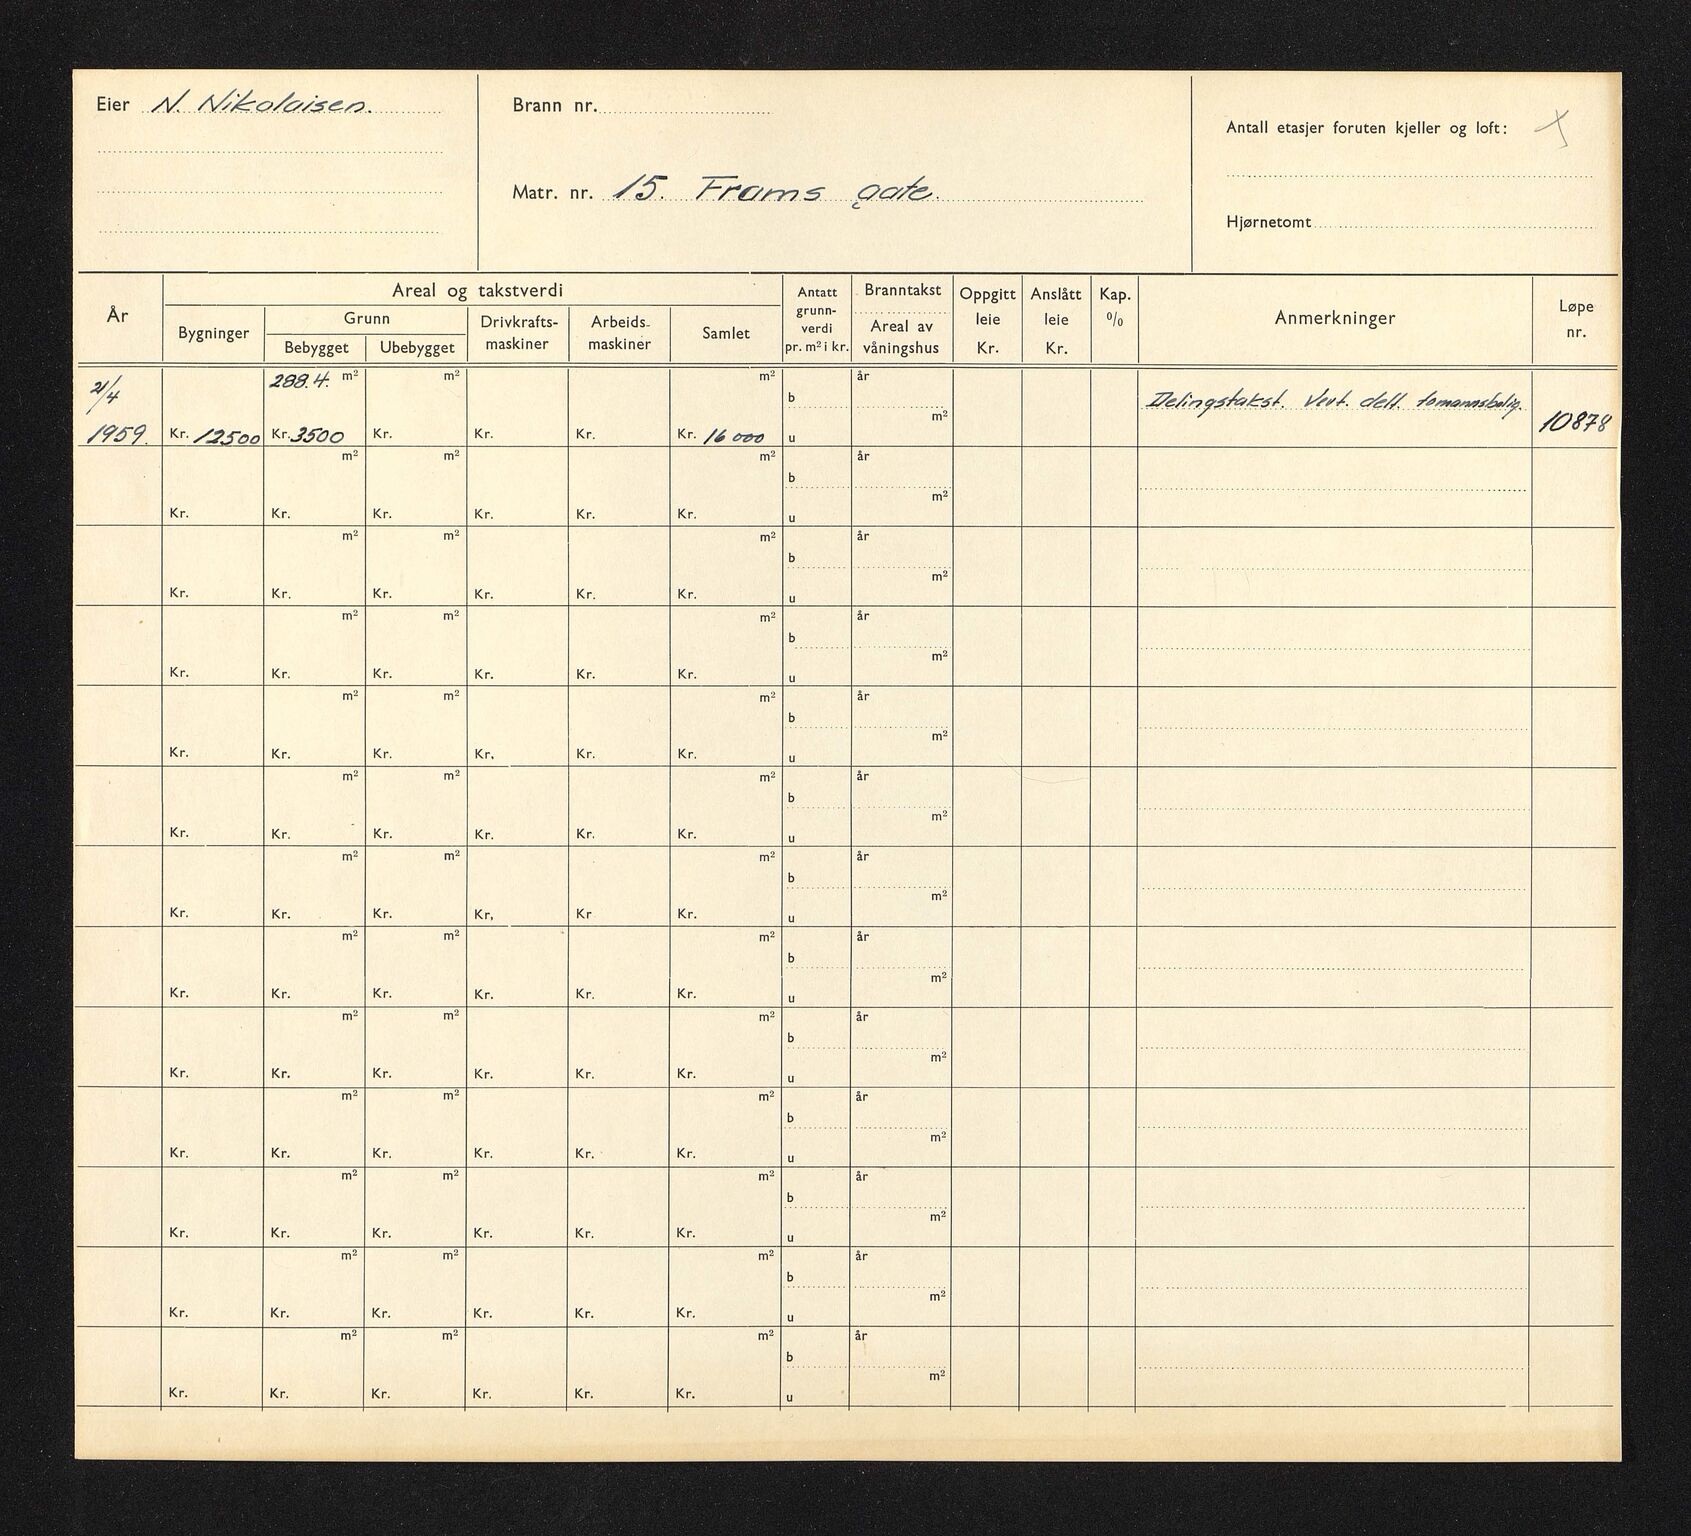 Eier N. Nikolaisen.
Brann nr.
Matr. nr. 15. Frams gate.
Antall etasjer foruten kjeller og loft:
Hjørnetomt
År
Areal og takstverdi
Bygninger
Grunn
Bebygget
Ubebygget
Drivkrafts-
maskiner
Arbeids-
maskiner
Samlet
Antatt
grunn-
verdi
pr. m² i kr.
Branntakst
Areal av
våningshus
Oppgitt
leie
Kr.
Anslått
leie
Kr.
Kap.
%
Anmerkninger
Løpe
nr.
21/4 288.4. m² m² m² b år m² Delingstakst. Vert. delt. tomannsbolig.
1959. Kr. 12500 Kr. 3500 Kr. Kr. Kr. Kr. 16 000 u 10878
m² m² m² b år m²
Kr. Kr. Kr. Kr. Kr. Kr. u
m² m² m² b år m²
Kr. Kr. Kr. Kr. Kr. Kr. u
m² m² m² b år m²
Kr. Kr. Kr. Kr. Kr. Kr. u
m² m² m² b år m²
Kr. Kr. Kr. Kr. Kr. Kr. u
m² m² m² b år m²
Kr. Kr. Kr. Kr. Kr. Kr. u
m² m² m² b år m²
Kr. Kr. Kr. Kr, Kr Kr. u
m² m² m² b år m²
Kr. Kr. Kr. Kr. Kr. Kr. u
m² m² m² b år m²
Kr. Kr. Kr. Kr. Kr. Kr. u
m² m² m² b år m²
Kr. Kr. Kr. Kr. Kr. Kr. u
m² m² m² b år m²
Kr. Kr. Kr. Kr. Kr. Kr. u
m² m² m² b år m²
Kr. Kr. Kr. Kr. Kr. Kr. u
m² m² m² b år m²
Kr. Kr. Kr. Kr. Kr. Kr. u